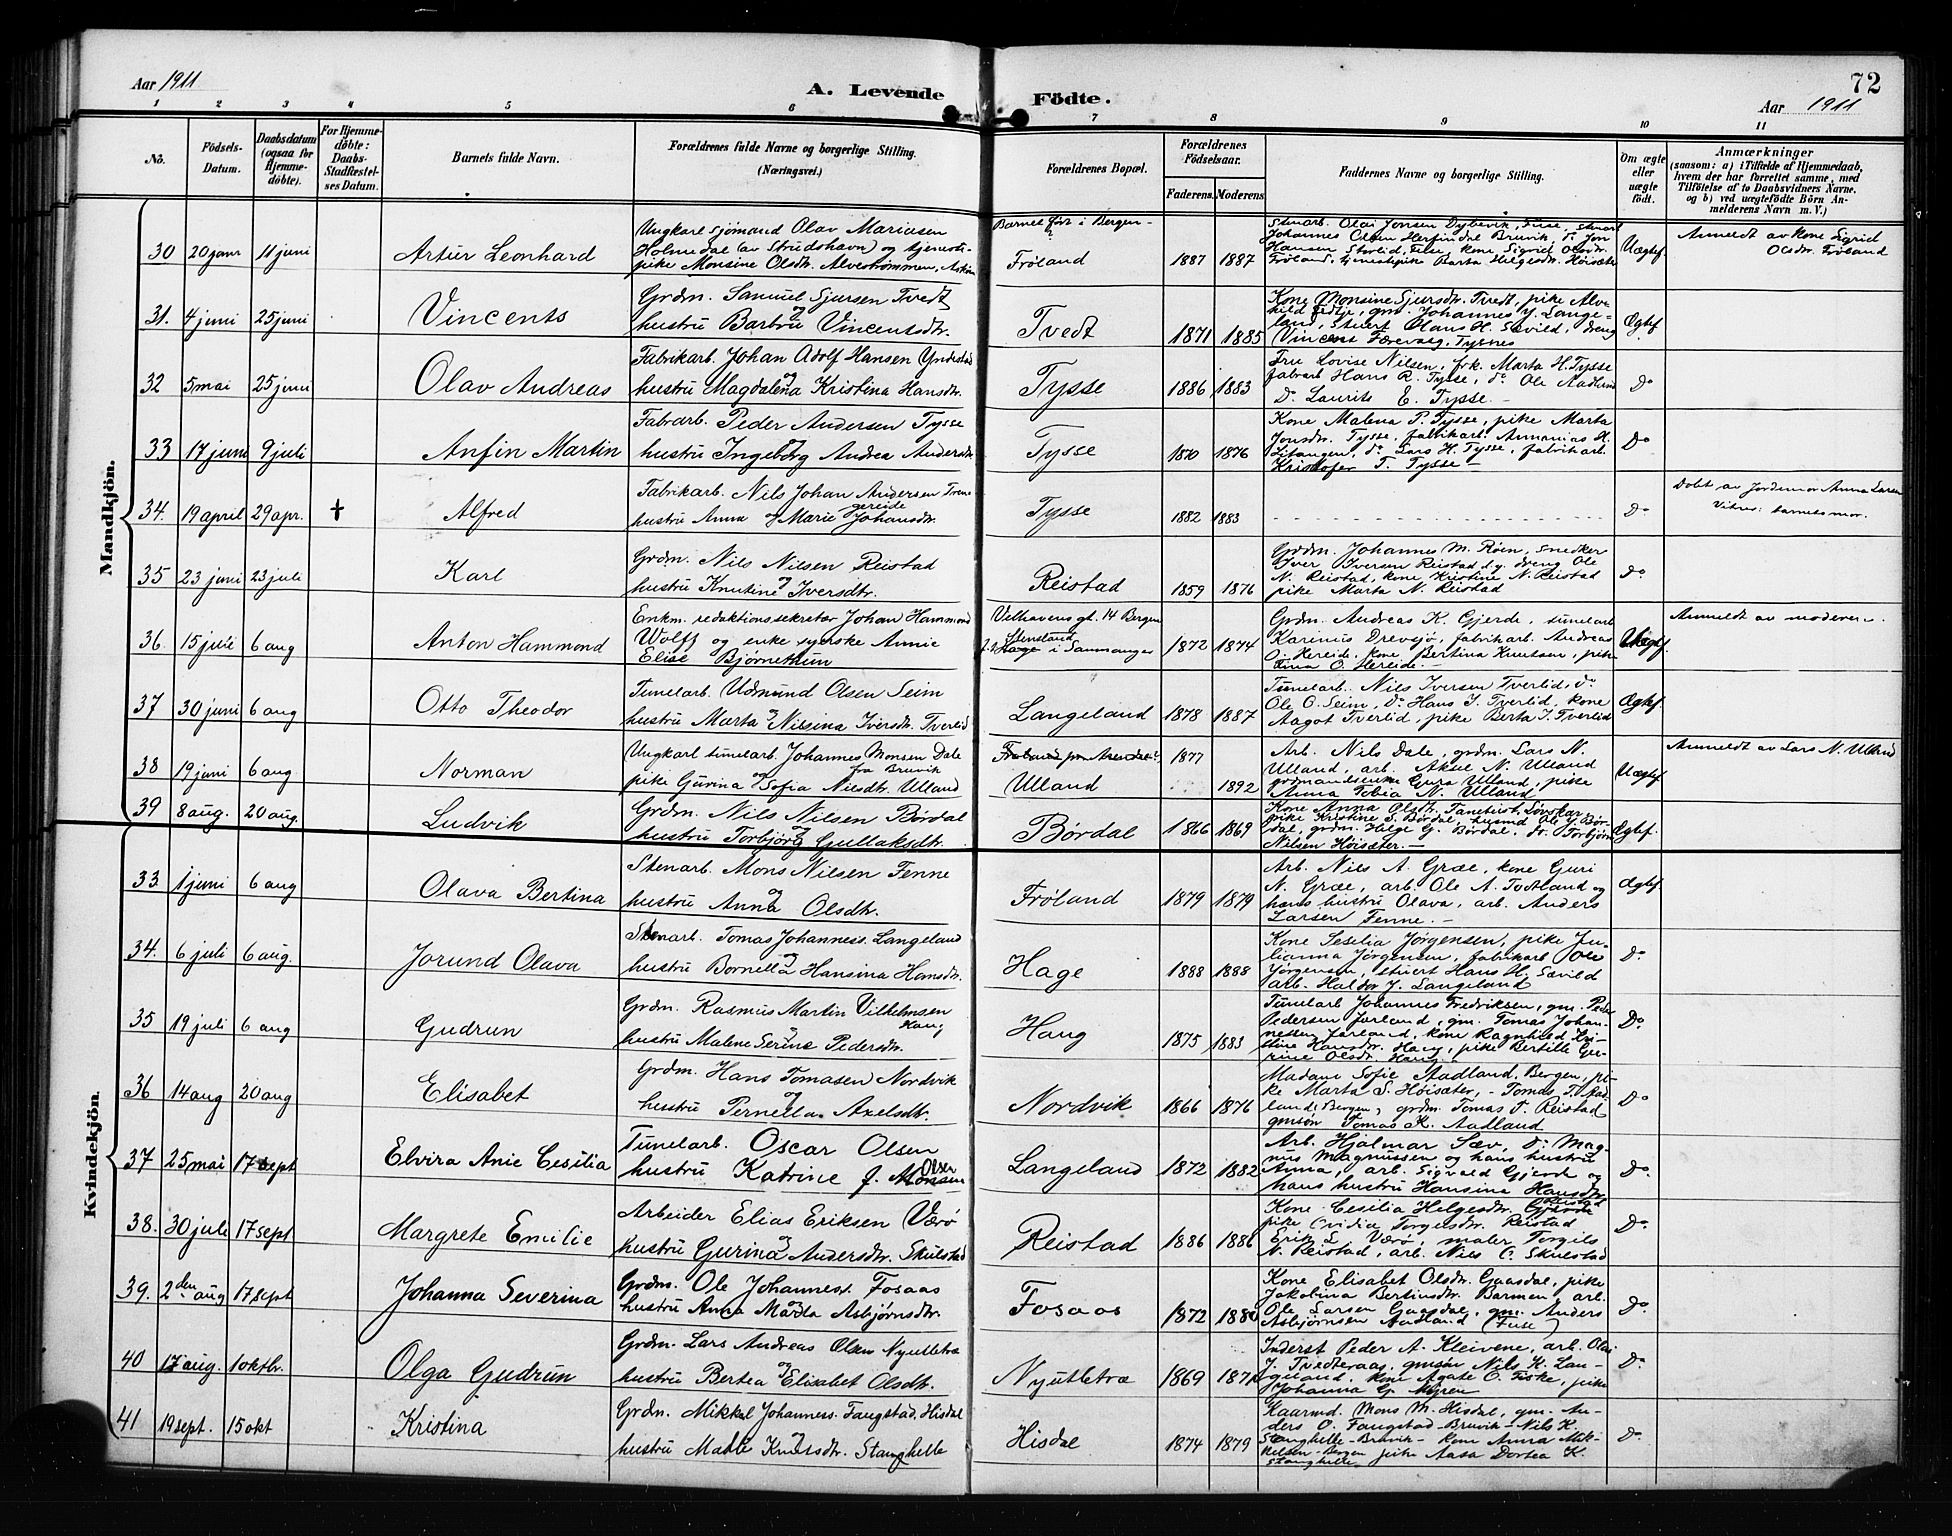 Aar 1911
A. Levende
Födte.
72
Aar 1911
1 2 3 4 5 6 7 8 9 10 11
No.
Födsels-Datum.
Daabsdatum (ogsaa for Hjemmedöbte).
For Hjemmedöbte: Daabs-Stadfæstelses Datum.
Barnets fulde Navn.
Forældrenes fulde Navne og borgerlige Stilling. (Næringsvei.)
Forældrenes Bopæl.
Forældrenes Födselsaar.
Faderens. Moderens.
Faddernes Navne og borgerlige Stilling.
Om ægte eller uægte födt.
Anmærkninger
(saasom: a) i Tilfælde af Hjemmedaab, hvem der har forrettet samme, med Tilföielse af to Daabsvidners Navne. og b) ved uægtefödte Börn Anmelderens Navn m. V.)
Mandkjön.
30 20 janr 11 juni Artur Leonhard
Ungkarl sjømand Olav Mariasen
Holmedal (av Strudshavn) og tjeneste-
pike Monsine Olsdtr. Alvestrømmen, Askøen
Barnet født i Bergen
Frøland 1887 1887
Stenarb. Olai Jonsen Dybevik, Fuse,
Johannes Olsen Herfindal Bruvik, do Jon
Hansen Storlid, Fuse kone Sigrid Olsdtr.
Frøland, tjenestepike Barta Helgesdtr. Høisæter
Uægtef.
Anmeldt av kone Sigrid
Olsdtr. Frøland
31. 4 juni 25 juni Vincents
Grdm. Samuel Sjursen Tvedt
hustru Barbru Vincentsdtr.
Tvedt 1871 1885
Kone Monsine Sjursdtr. Tvedt, pike Alv-
hild Fedtje, gm. Johannes Y. Lange-
land, Stuert Olans H. Sævild, dreng
Vincent Færevaag, Tysnes
Ægtef.
32 5 mai 25 juni Olav Andreas
Fabrikarb. Johan Adolf Hansen Yndestad
og
hustru Magdalena Kristina Hansdtr.
Tysse 1886 1883
Fru Lovise Nilsen, frk. Marta H. Tysse
fabarb Hans R. Tysse, do Ole Aadland
Do Laurits E. Tysse.
Do
33 17 juni 9 juli Anfin Martin
Fabrarb. Peder Andersen Tysse
og
hustru Ingeborg Andrea Andersdtr
Tysse 1870 1876
Kone Malena P. Tysse, pike Marta
Jonsdtr. Tysse, fabrikarb. Annanias H.
Litangen, do Lars H. Tysse, fabrikarb.
Kristofer T. Tysse
Do
34. 19 april 29 apr. † Alfred
Fabrikarb. Nils Johan Andersen Trengereide
hustru Anna og Marie Johansdtr.
Tysse 1882 1883
Do
Døbt av Jordemor Anna Larsen
Vitne: barnets mor.
35 23 juni 23 juli Karl
Grdm. Nils Nilsen Reistad
og
hustru Knutine Iversdtr.
Reistad 1859 1876
Grdm. Johannes M. Røen, snedker
Iver Iversen Reistad d.y. dreng Ole
N. Reistad, kone Kristine N. Reistad
pike Marta N. Reistad
Do
36. 15 juli 6 aug Anton Hammond
Enkm. redaktionssekretær Johan Hammond
Wolff og enke syerske Annie
Elise Bjørnethun
Velhavens gt. 14 Bergen
Stensland
Hage i Samnanger 1872 1874
Grdm. Andreas K. Gjerde, tunelarb
Karinius Drevsjø, fabrikarb. Andreas
O. Hereide, kone Bertina Knutsen, pike
Tina O. Hereide.
Uægtef.
Anmeldt av moderen
37 30 juni 6 aug Otto Theodor
Tunelarb. Udmund Olsen Seim
og
hustru Marta Nilsina Iversdtr. Tverlid
Langeland 1878 1887
Tunelarb. Nils Iversen Tverlid, do
Ole O. Seim, do Hans J. Tverlid, kone
Aagot Tverlid, pike Berta J. Tverlid
Ægtef.
38 19 juni 6 aug Norman
Ungkarl tunelarb. Johannes Monsen Dale
fra Bruvik
pike Gurina og Sofia Nilsdtr. Ulland
Ulland 1877 1892
Arb. Nils Dale, grdm. Lars N.
Ulland, arb. Aksel N. Ulland
grdmandsenke Gura Ulland, pike
Anna Tobia N. Ulland
Uægtef
Anmeldt av Lars N. Ulland
39 8 aug. 20 aug. Ludvik
Grdm. Nils Nilsen Børdal
og
hustru Torbjørg Gullaksdtr.
Børdal 1866 1869
Kone Anna Olsdtr.
pike Kristine S. Børdal, husmd Ole Y. Bør-
dal, grdm. Helge G. Børdal, dr. Torbjørn
Nilsen Høisæter.
Ægtef.
Kvindekjön.
33 1 juni 6 aug Olava Bertina
Stenarb. Mons Nilsen Tenne
og
hustru Anna Olsdtr.
Frøland 1879 1879
Arb. Nils A. Græe, kone Guri
N. Græe, arb. Ole A. Tootland og
hans hustru Olava, arb. Anders
Larsen Tenne.
Ægtef.
34. 6 juli 6 aug. Jorund Olava
Stenarb. Tomas Johanness. Langeland
og
hustru Bornella Hansina Hansdtr.
Hage 1888 1888
Kone Sesilia Jørgensen, pike Ju-
lianna Jørgensen, fabrikarb Ole
Jørgensen, stuert Hans H. Sævild
arb. Haldor J. Langeland
Do
35 19 juli 6 aug Gudrun
Grdm. Rasmus Martin Vilhelmsen
Haug
og
hustru Malene Serine Pedersdtr.
Haug 1875 1883
Tunelarb Johannes Fredriksen, gm. Peder
Pedersen Jarland, gm. Tomas Johan-
nessen Jarland, kone Ragnhild Kri-
stine Hansdtr. Haug, pike Bertille Gu-
rine Olsdtr. Haug.
Do
36 14 aug 20 aug Elisabet
Grdm. Hans Tomasen Nordvik
og
hustru Pernella Axelsdtr.
Nordvik 1866 1876
Madam Sofie Aadland, Bergen, pi-
ke Marta S. Høisæter, - Tomas T. Aad-
land, Bergen, grdm. Tomas T. Reistad
gmsøn Tomas K. Aadland
Do
37 25 mai 17 sept Elvira Anie Cesilia
Tunelarb. Oscar Olsen
hustru Katrine f. Monsen
Olsen
Langeland 1872 1882
Arb. Hjalmar Sæv, do Mag-
nus Magnussen og hans hustru
Anna, arb. Sigvald Gjerde og
hans hustru Hansina Hansdtr
Do
38. 30 juli 17 sept Margrete Emilie
Arbeider Elias Eriksen Værø
og
hustru Gurina Andersdtr. Skulstad
Reistad 1886 1886
Kone Cesilia Helgesdtr. Reistad
pike Ovidia Torgelsdtr. Reistad
Erik S. Værø, maler Torgils
N. Reistad, arb. Nils O. Skulestad
Do
39. 2den aug 17 sept Johanna Severina
Grdm. Ole Johannes. Fosaas
og
hustru Anna Marta Asbjørnsdtr.
Fosaas 1872 1880
Kone Elisabet Olsdtr. Gaasdal, pike
Jakobina Bertinsdtr. Barmen, arb.
Ole Larsen Gaasdal, gm. Anders
Asbjørnsen Aadland (Fuse)
Do
40 17 aug. 1 oktbr. Olga Gudrun
Grdm. Lars Andreas Olsen Nyutletræ
og
hustru Bertea Elisabet Olsdtr.
Nyutletræ 1869 1871
Inderst Peder A. Kleivene, arb. Olai
J. Tvedteraas, gmsøn Nils K. Lan-
geland, kone Agate O. Fiske, pike
Johanna G. Myren
Do
41 19 sept. 15 okt Kristina
Grdm. Mikkal Johanness. Faugstad, Hisdal
og
hustru Malle Knutsdtr. Stanghelle
Hisdal 1874 1879
Kaarmd. Mons M. Hisdal, gm. An-
ders O. Faugstad - Bruvik - Nils K.
Stanghelle - Bruvik - kone Anna Mik-
kelsen - Bergen pike Aasa Dortea K.
Stanghelle
Do